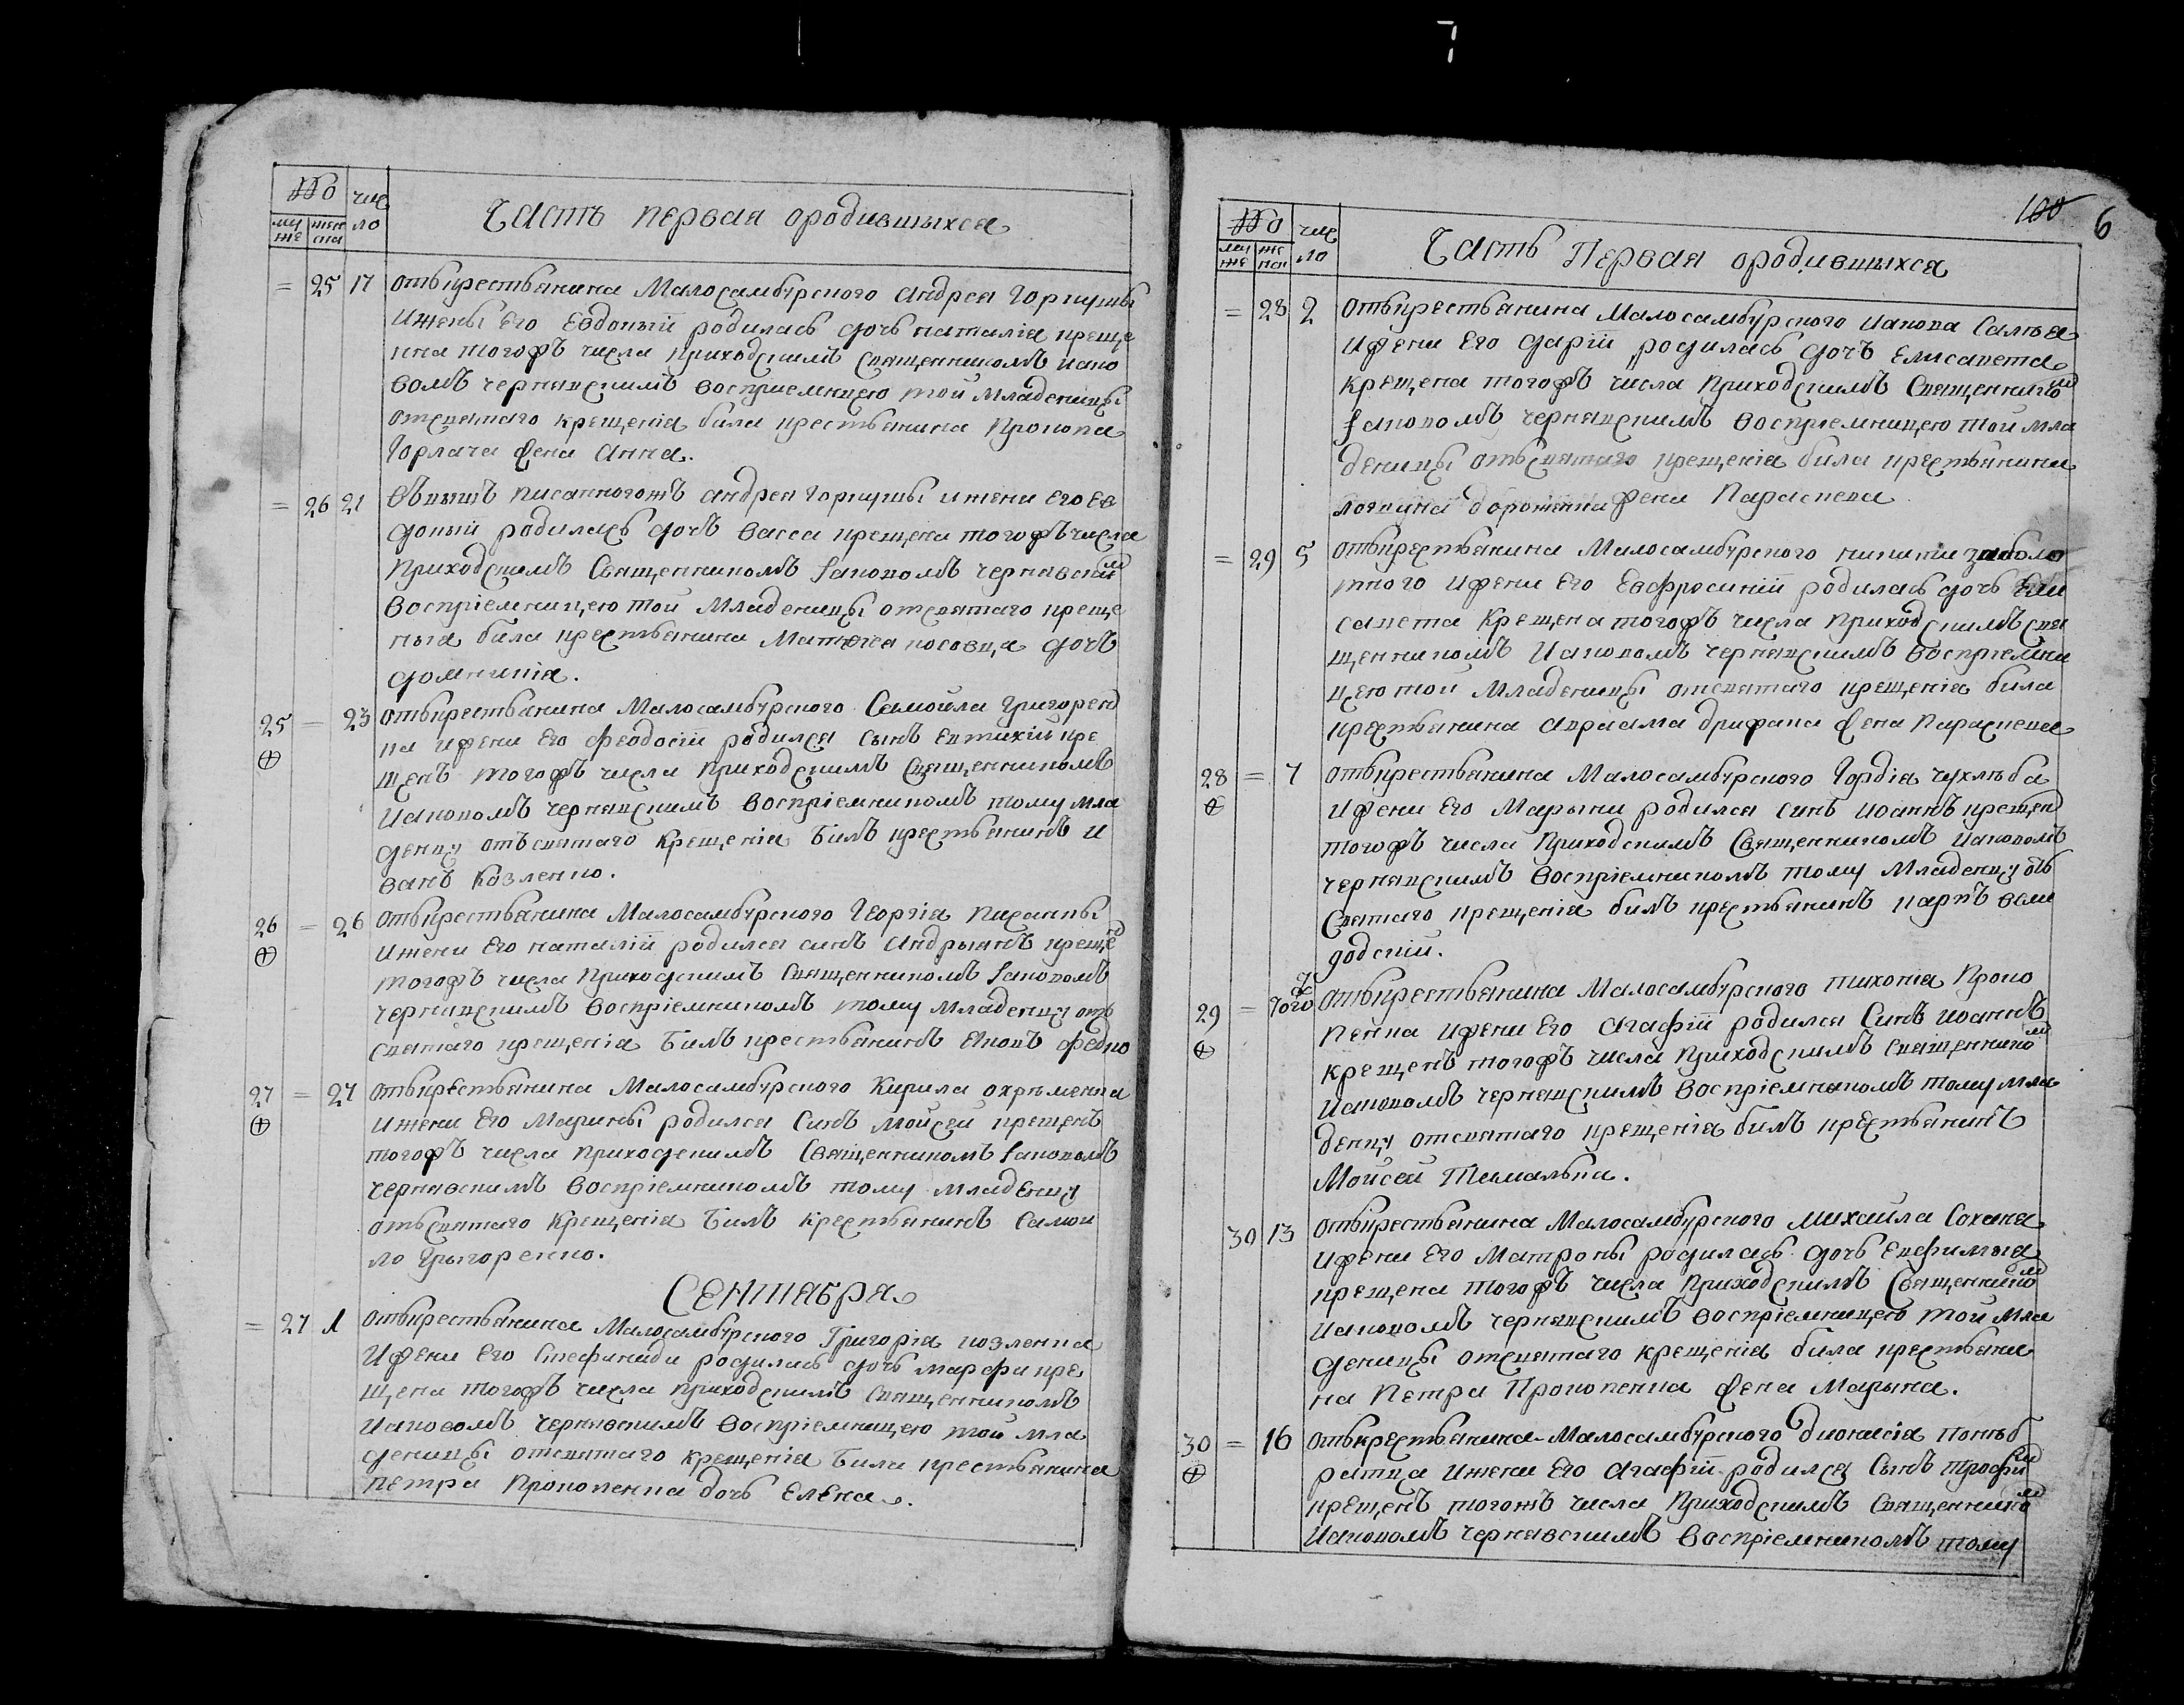 7
100
6
№ чис
му жен ло
же ска
Часть первая ородившыхся
= 25 17 отъкрестьянина Малосамбурского андрея Горкушы
Ижены Его Евдокыи родилась дочь наталіа креще
нна тогожъ числа приходскимъ Священникомъ иако
вомъ чернявскимъ восприемницею той младеницы
отсвятаго крещенія била крестьянина Прокопа
Горлача жена Анна.
= 26 21 Въвышъ писанногожъ андрея Горкушы ижени его Ев
докыи родилась дочъ васса крещена тогожъ числа
приходскимъ Священникомъ Іаковомъ чернявским
воспріемницею той младеницы отсвятаго креще
ныя била крестьянина Матфея носовца дочъ
домникія.
25 = 23 отъкрестьянина Малосамбурского Самойла Григорен
ка ижени Его феодосіи родился сынъ Евтихій кре
щенъ тогожъ числа приходскимъ Священникомъ
Иаковомъ чернявскимъ воспріемникомъ тому мла
денцу отъ святаго Крещенія билъ крестьянинъ И
ванъ Козленко.
26 = 26 отъкрестьянина Малосамбурского Георгія
ижени Его наталіи родился синъ Андрыянъ крещен
тогожъ числа приходскимъ Священникомъ Іаковомъ
чернявскимъ воспріемникомъ тому младенцу отъ
святаго крещенія билъ крестьянинъ Яковъ
27 = 27 отъкрестьянина Малосамбурского Кирила охрѣменка
ижени Его Марины родился Синъ Мойсей крещенъ
тогожъ числа приходскимъ Священникомъ Іаковомъ
чернявскимъ воспріемникомъ тому младенцу
отьсвятаго крещенія билъ крестьянинъ Самои
ло Грыгоренко.
Сентабра
= 27 1 отъкрестьянина Малосамбурского Григорія козленка
Ижени Его Стефаниди родилась дочь марфа кре
щена тогожъ числа приходскимъ священникомъ
иаковомъ чернявскимъ воспріемницею той мла
деницы отсвятаго крещенія била крестьянина
петра Прокопенка дочь Елена.
№ чис
му же ло
же нск
Часть Первая ородившыхся
= 28 2 отъкрестьянина Малосамбурского иакова
ижени Его даріи родилась дочъ Елисавета
крещена тогожъ числа приходскимъ Священником
Іаковомъ чернявскимъ воспріемницею той мла
деницы отъсвятаго крещенія била крестьянина
дорошенка жена Параскева
= 29 5 отъкрестьянина Малосамбурского никити заболо
тного ижени Его Евфросиніи родилась дочъ Ели
савета Крещена тогожъ числа приходскимъ свя
щенникомъ Иаковомъ чернявскимъ воспріемни
цею той младеницы отсвятаго крещенія била
крестьянина авраама жена Параскева
28 = 7 отъкрестьянина Малосамбурского Гордія чухлѣба
ижени Его Марыни родился синъ иоаннъ крещен
тогожъ числа приходскимъ Священникомъ иаковомъ
чернявскимъ воспріемникомъ тому младенцу отъ
Святаго крещенія билъ крестьянинъ
29 = тогож отъкрестьянина Малосамбурского тихонія Проко
пенка ижени Его Агафіи родился Синъ иоаннъ
крещенъ тогожъ числа приходскимъ священником
иаковомъ чернявскимъ воспріемникомъ тому мла
денцу отсвятаго крещенія билъ крестьянинъ
Мойсей
30 13 отъкрестьянина Малосамбурского михаила Сохана
ижени Его Матроны родилась дочъ Евфимыя
крещена тогожъ числа приходскимъ Священником
иаковомъ чернявскимъ воспріемницею той мла
деницы отсвятаго крещенія била крестьяни
на Петра Прокопенка жена Марына.
30 = 16 отъкрестьянина Малосамбурского дионисія
ижени Его Агафіи родился сынъ трофим
крещенъ тогожъ числа приходскимъ Священником
Иаковомъ чернявскимъ воспріемникомъ тому